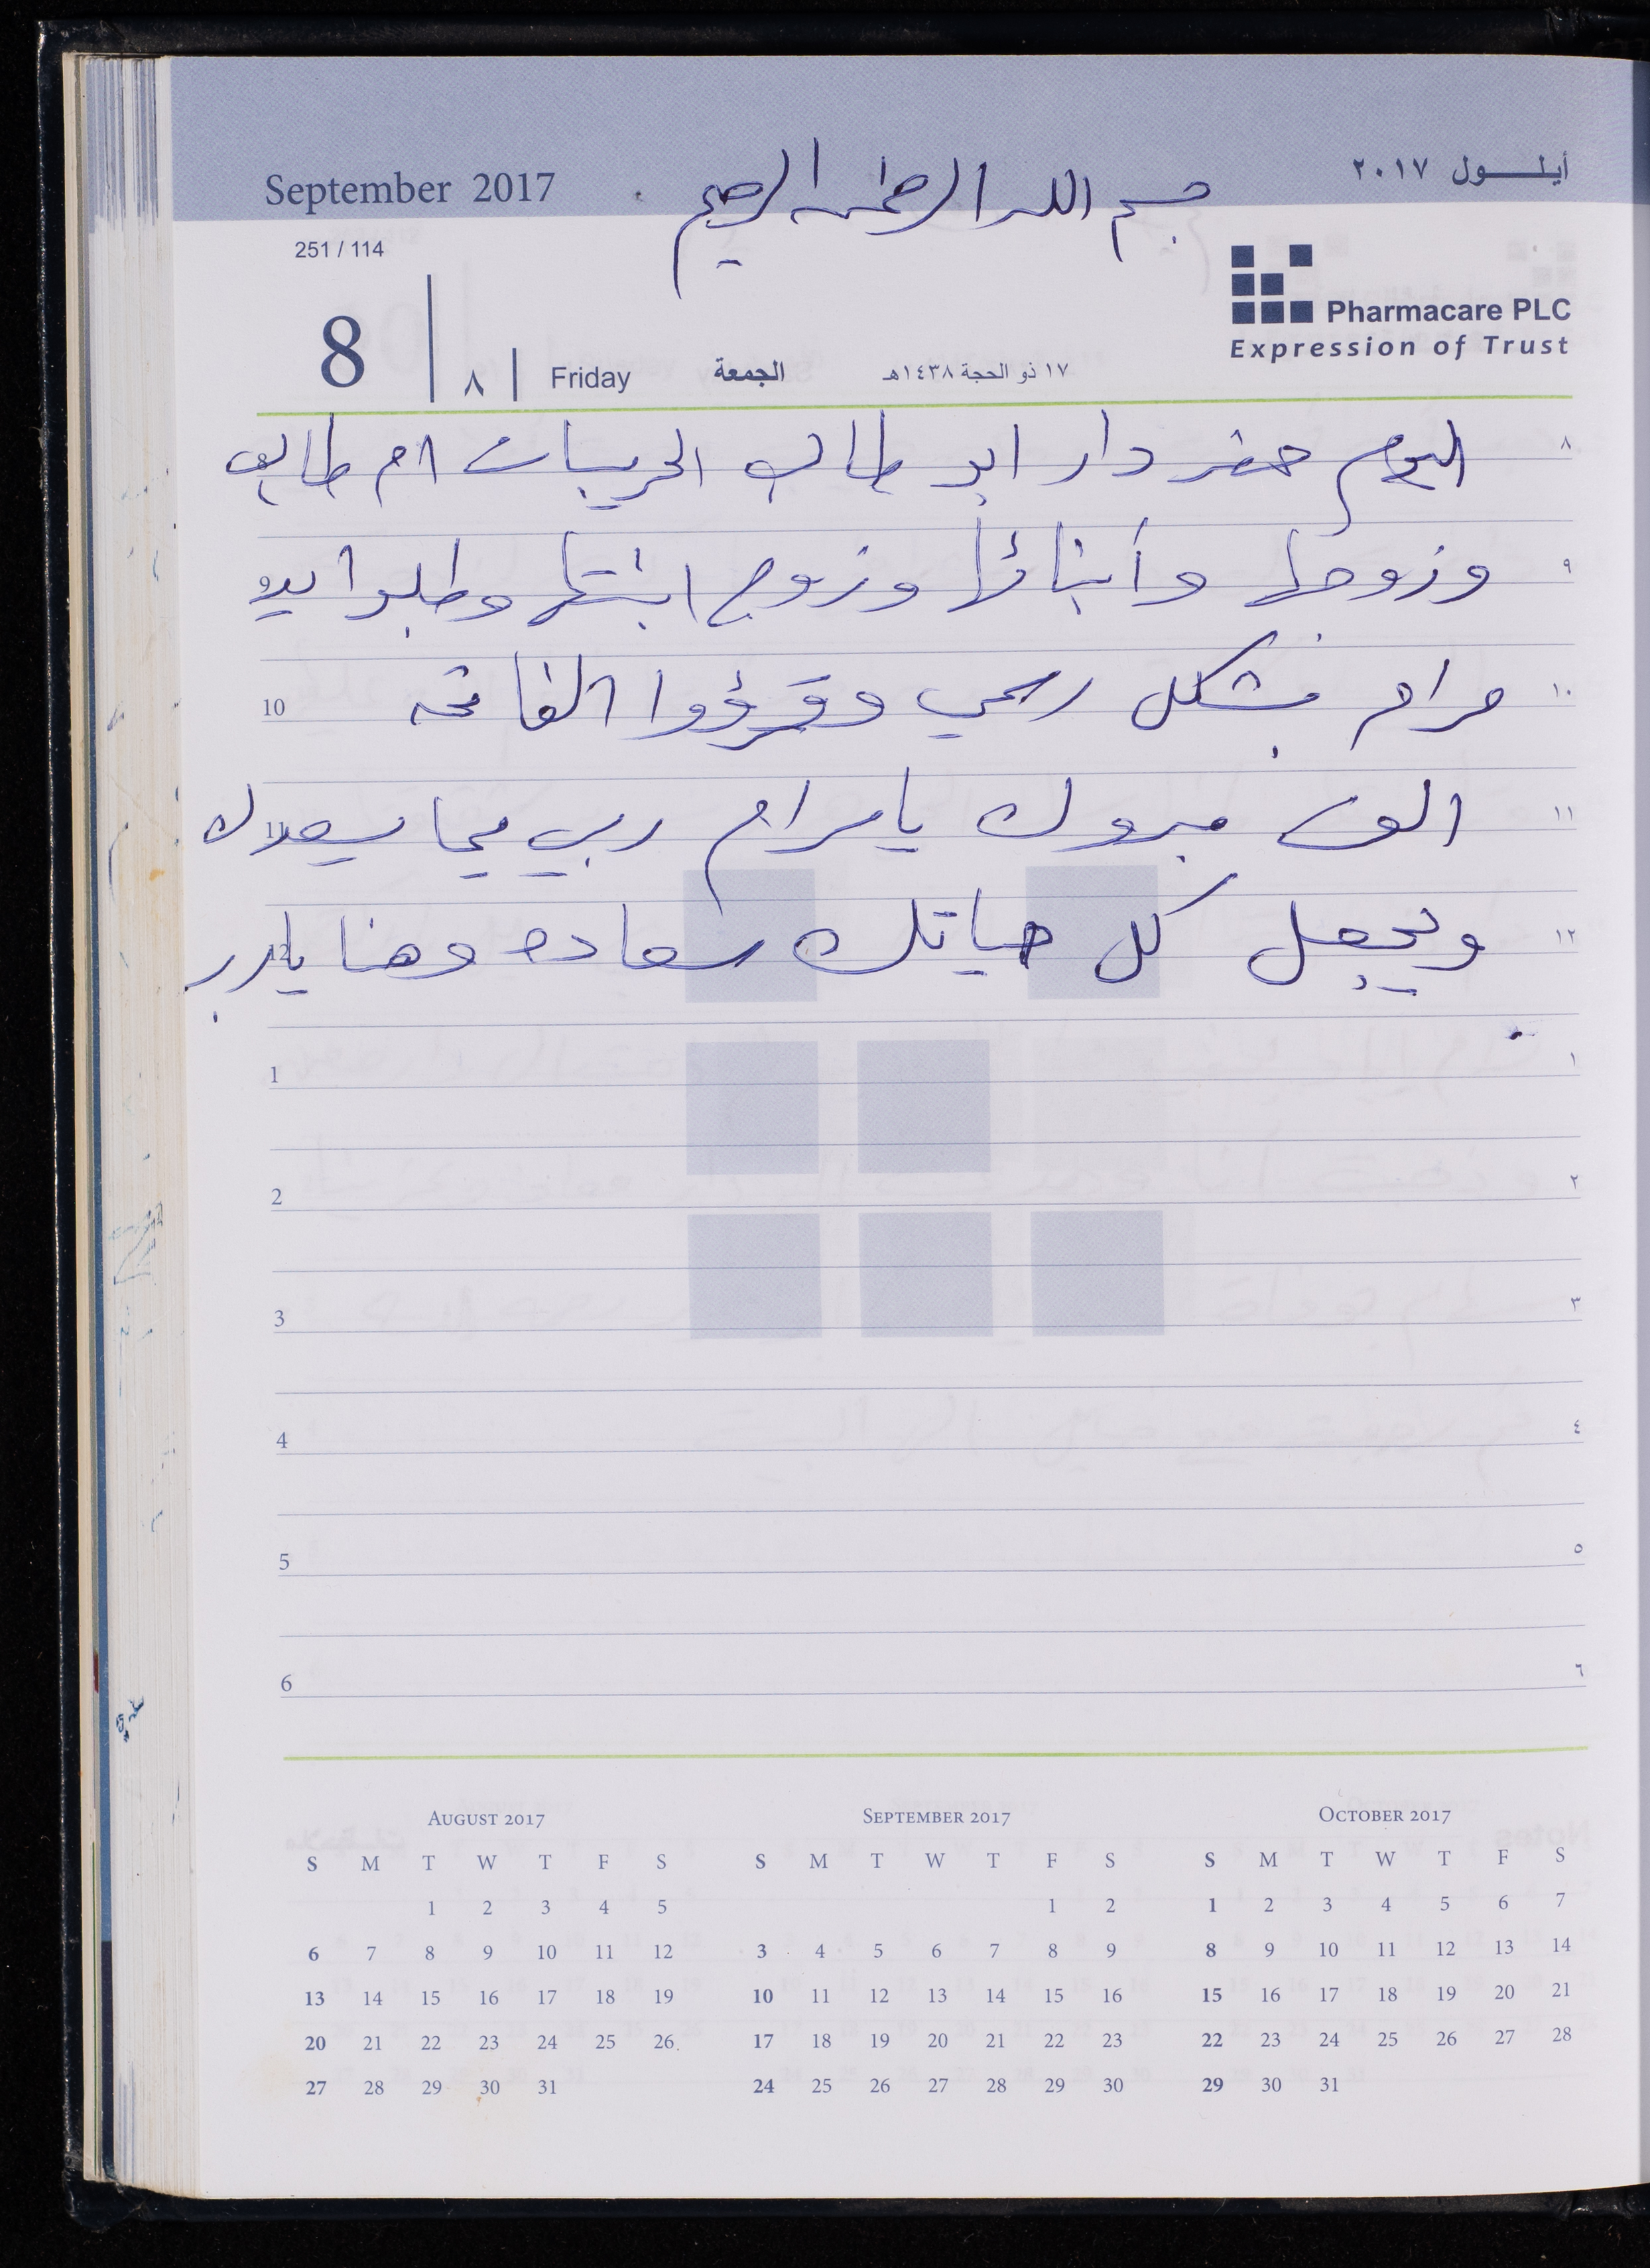 أيلـــول ٢٠١٧
September 2017
بسم الله الرحمن الرحيم
251 / 114
Pharmacare PLC
Expression of Trust
8 | ٨ | Friday الجمعة ١٧ ذو الحجة ١٤٣٨هـ
٨ اليوم حضر دار ابو طالب الحريبات ام طالب
٩ وزوجها وأبنائها وزوج ابنتها وطلبوا يد
١٠ مرام بشكل رسمي وقرؤوا الفاتحه 10
١١ الف مبروك يا مرام ربي يما يسعدك 11
١٢ ويجعل كل حياتك سعاده وهنا يارب 12
1 ١
2 ٢
3 ٣
4 ٤
5 ٥
6 ٦
August 2017
S M T W T F S
1 2 3 4 5
6 7 8 9 10 11 12
13 14 15 16 17 18 19
20 21 22 23 24 25 26
27 28 29 30 31
September 2017
S M T W T F S
1 2
3 4 5 6 7 8 9
10 11 12 13 14 15 16
17 18 19 20 21 22 23
24 25 26 27 28 29 30
October 2017
S M T W T F S
1 2 3 4 5 6 7
8 9 10 11 12 13 14
15 16 17 18 19 20 21
22 23 24 25 26 27 28
29 30 31